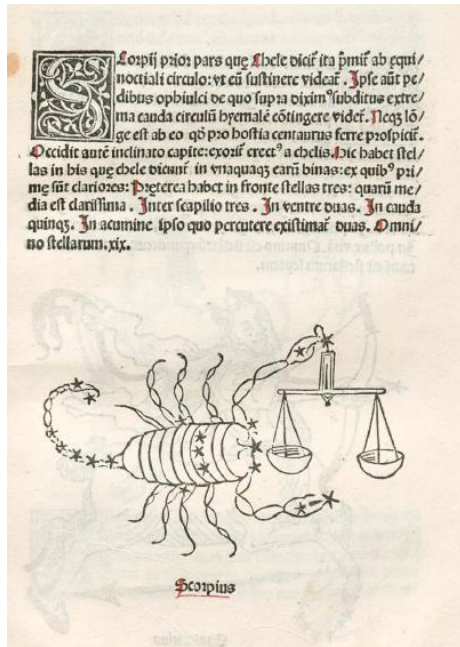 Scorpij prior pars quę Chele dicit̃ ita p̃mit̃ ab ęqui/
noctiali circulo: vt eũ sustinere videat̃. Ipse aũt pe/
dibus ophiulci de quo supra dixim⁹ subditus extre/
ma cauda circulũ hyemalẽ cõtingere videt̃. Neqꝫ lõ/
ge est ab eo qd̃ pro hostia centaurus ferre prospicit̃.
Occidit autẽ inclinato capite: exorit̃ erect⁹ a chelis. Hic habet stel/
las in his quę chele dicunt̃ in vnaquaqꝫ earũ binas: ex quib⁹ pri/
mę sũt clariores: Pręterea habet in fronte stellas tres: quarũ me/
dia est clarissima. Inter scapilio tres. In ventre duas. In cauda
quinqꝫ. In acumine ipso quo percutere existimat̃ duas. Omni/
no stellarum.xix.
Scorpius